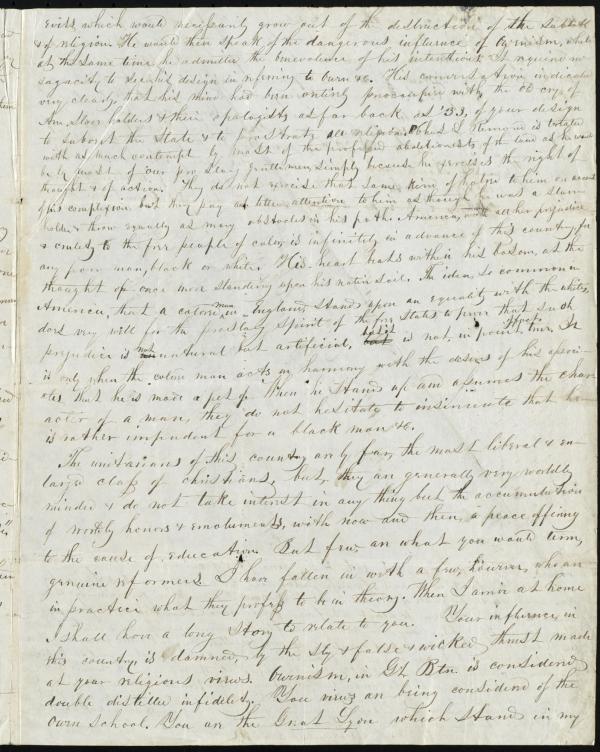 Evils, which would necessarily grow out of the destruction of the Sabbath
& of religion. He would then speak of the dangerous influence of Owenism, while
at the same time he admitted the benevolence of his intentions. It required no
sagacity to see his design in referring to Owen &c. His conversation indicated
very clearly that his mind had been entirely preoccupied with the old cry of
Am. slave holders & their apologists as far back as '33, of your design
to subvert the State & to prostrate all religion. C. L. Remond is treated
with as much contempt by most of the professed abolitionists of the land as he would
be by most of our pro slavery gentlemen, simply because he exercises the right of
thought & of action. They do not exercise that same kind of hatred to them on account
of his complexion but they pay as little attention to him as though he was a slave
holder & throw equally as many obstacles in his path. America, with all her prejudice
& cruelty to the free people of color is infinitely in advance of this country, for
any poor man, black or white. His heart leaps within his bosom, at the
thought of once more standing upon his native soil. The idea, so common in
America, that a colored man in England, stands upon an equality with the whites,
does very well for the proslavery spirit of the free States to prove that such
prejudice is not natural but artificial, but it is not, in point of fact, true. It
is only when the colored man acts in harmony with the desires of his associ-
ates that he is made a pet of. When he stands up and assumes the char-
acter of a man, they do not hesitate to insinuate that he
is rather impudent for a black man &c.
The unitarians of this country are by far, the most liberal & en-
larged class of christians, but, they are generally very worldly
minded & do not take interest in any thing but the accumulation
of worldly honors & emoluments, with now and then, a peace offering
to the cause of education. But few, are what you would term,
genuine reformers. I have fallen in with a few, however, who are
in practice what they profess to be in theory. When I arrive at home
I shall have a long story to relate to you. Your influence, in
this country, is damned, by the sly & false & wicked thrust made
at your religious views. Owenism, in Gt. Btn. is considered
double distilled infidelity. Your views are being considered of the
Owen School. You are the Great Lyon which stands in my